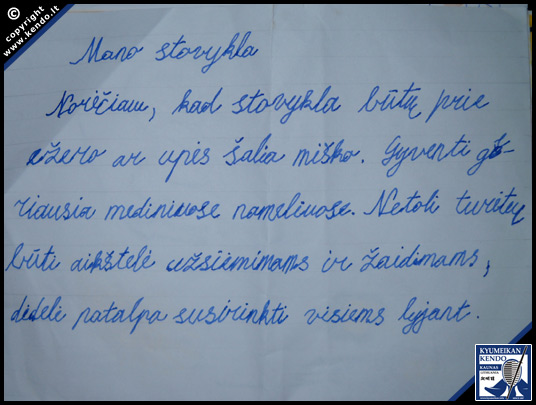 © copyright
www.kendo.lt
Mano stovykla
Norėčiau, kad stovykla būtų prie
ežero ar upės šalia miško. Gyventi ge-
riausia mediniuose nameliuose. Netoli turėtų
būti aikštelė užsiėmimams ir žaidimams,
didelė patalpa susirinkti visiems lyjant.
KYUMEIKAN
KENDO
KAUNAS
LITHUANIA